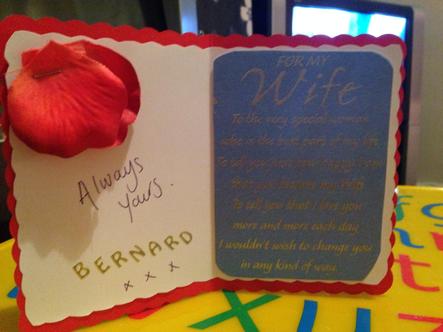 Always
yours.
BERNARD
x x x
FOR MY
Wife
To the very special woman
who is the best part of my life
To tell you just how happy I am
that you became my Wife
To tell you that I love you
more and more each day
I wouldn't wish to change you
in any kind of way.